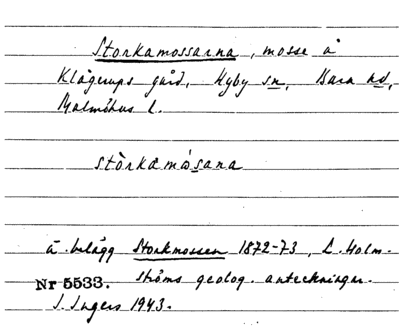 Storkamossarna, mosse å
Klågerups gård, Hyby sn, Bara hd,
Malmöhus l.
stòrkamåsana
ä. belägg Storkmossen 1872-73, L. Holm-
Nr 5533. ströms geolog. anteckningar.
I. Ingers 1943.